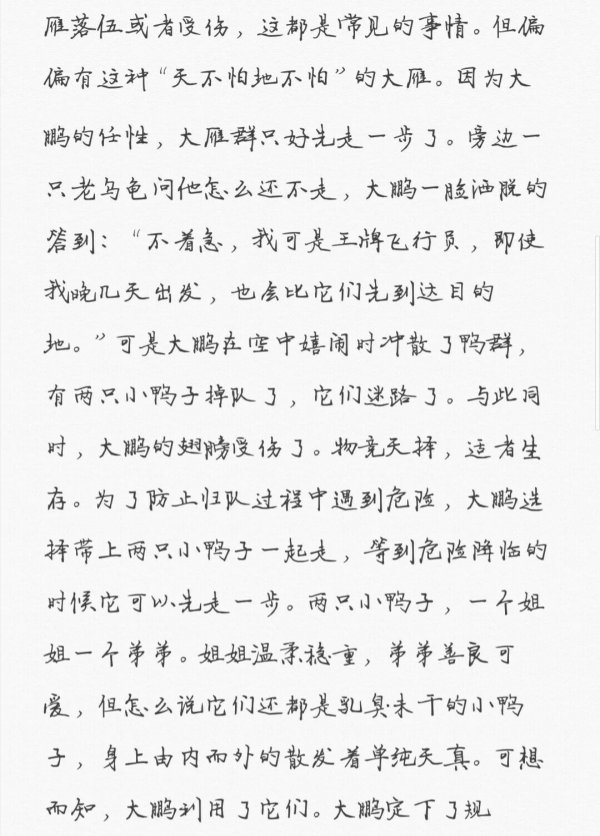 雁落伍或者受伤，这都是常见的事情。但偏
偏有这种“天不怕地不怕”的大雁。因为大
鹏的任性，大雁群只好先走一步了。旁边一
只老乌龟问他怎么还不走，大鹏一脸洒脱的
答到：“不着急，我可是王牌飞行员，即使
我晚几天出发，也会比它们先到达目的
地。”可是大鹏在空中嬉闹时冲散了鸭群，
有两只小鸭子掉队了，它们迷路了。与此同
时，大鹏的翅膀受伤了。物竞天择，适者生
存。为了防止归队过程中遇到危险，大鹏选
择带上两只小鸭子一起走，等到危险降临的
时候它可以先走一步。两只小鸭子，一个姐
姐一个弟弟。姐姐温柔稳重，弟弟善良可
爱，但怎么说它们还都是乳臭未干的小鸭
子，身上由内而外的散发着单纯天真。可想
而知，大鹏利用了它们。大鹏定下了规